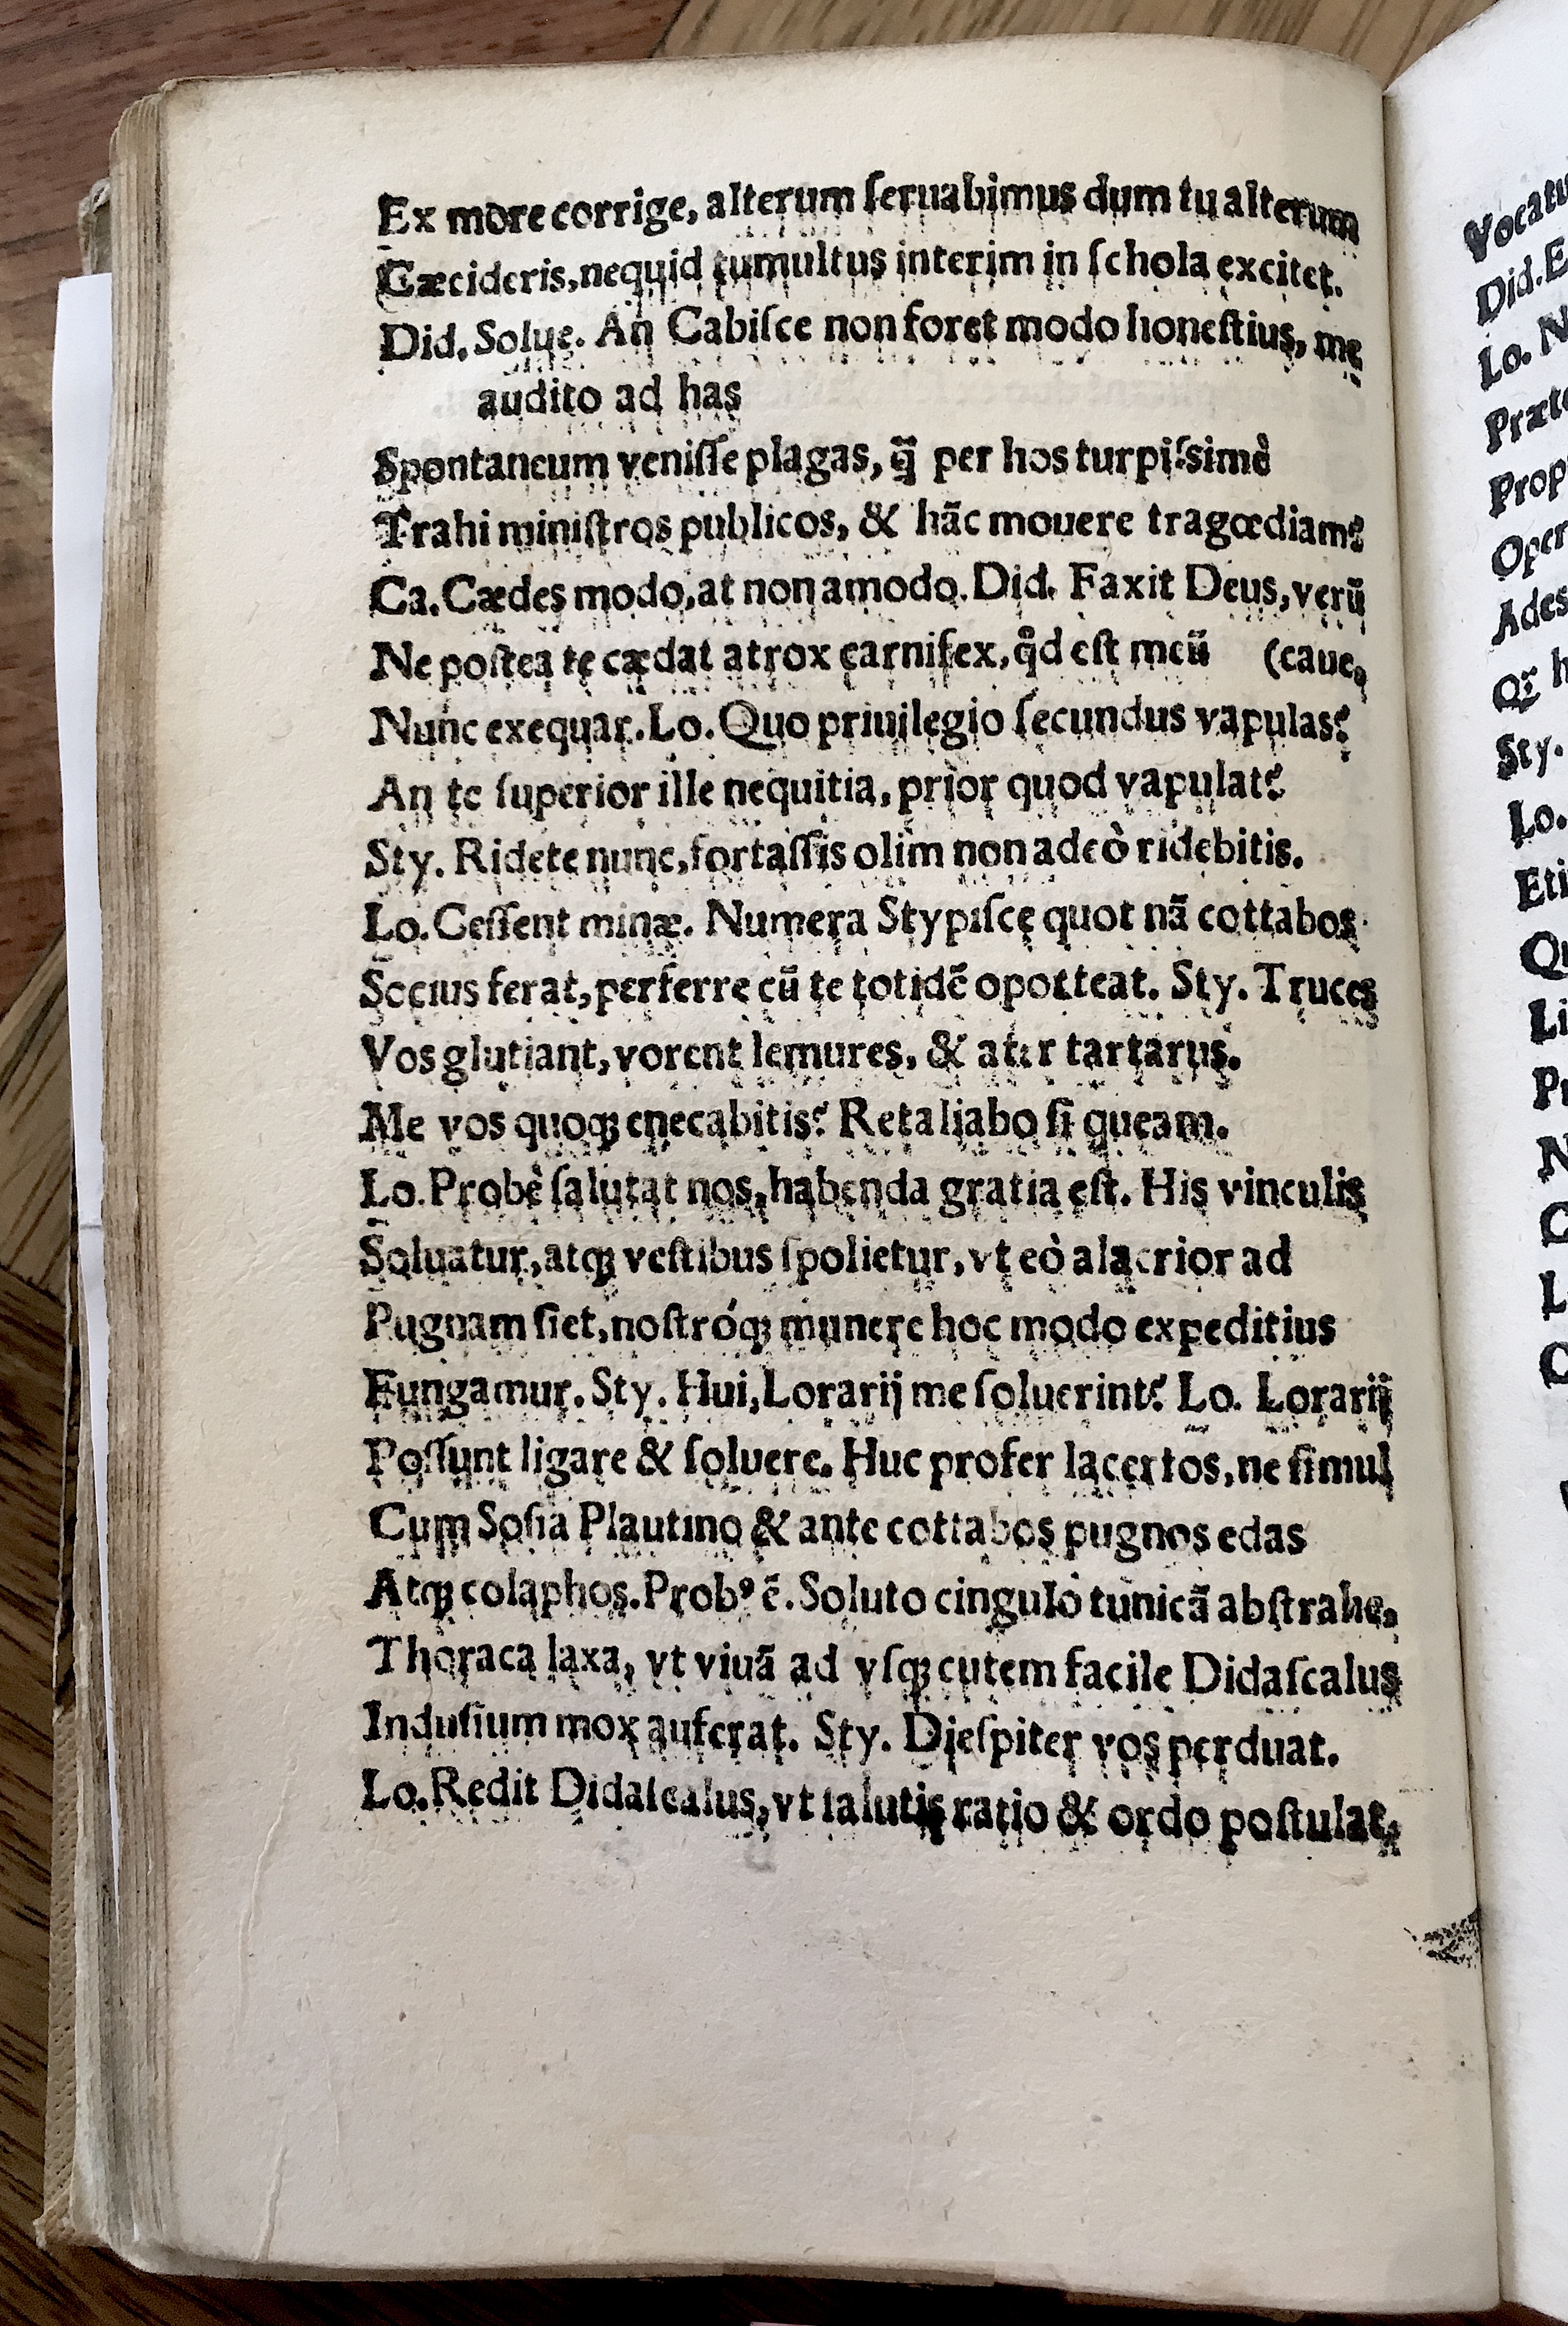 Ex more corrige, alterum ſeruabimus dum tu alterum
Cæcideris, nequid tumultus interim in ſchola excitet.
Did. Solue. An Cabiſce non foret modo honeſtius, me
audito ad has
Spontaneum veniſſe plagas, q̃ per hos turpiſsimè
Trahi miniſtros publicos, & hãc mouere tragœdiam?
Ca. Cædes modo, at non amodo. Did. Faxit Deus, verũ
Ne poſtea te cædat atrox carnifex, qd̓ eſt meũ (caue,
Nunc exequar. Lo. Quo priuilegio ſecundus vapulas?
An te ſuperior ille nequitia, prior quod vapulat?
Sty. Ridete nunc, fortaſſis olim non adeò ridebitis.
Lo. Ceſſent minæ. Numera Stypiſce quot nã cottabos
Socius ferat, perferre cũ te totidẽ opotteat. Sty. Truces
Vos glutiant, vorent lemures, & ater tartarus.
Me vos quoqꝫ enecabitis? Retaliabo ſi queam.
Lo. Probè ſalutat nos, habenda gratia eſt. His vinculis
Soluatur, atqꝫ veſtibus ſpolietur, vt eò alacrior ad
Pugnam fiet, noſtróqꝫ munere hoc modo expeditius
Fungamur. Sty. Hui, Lorarij me ſoluerint? Lo. Lorarij
Poſſunt ligare & ſoluere. Huc profer lacertos, ne ſimul
Cum Soſia Plautino & ante cottabos pugnos edas
Atqꝫ colaphos. Probꝰ ẽ. Soluto cingulo tunicã abſtrahe,
Thoraca laxa, vt viuã ad vſqꝫ cutem facile Didaſcalus
Induſium mox auferat. Sty. Dieſpiter vos perduat.
Lo. Redit Didaſcalus, vt ſalutis ratio & ordo poſtulat,
Vocatu
Did. E
Lo. N
Præt
Prop
Oper
Ades
Sty.
Lo.
Eti
Li